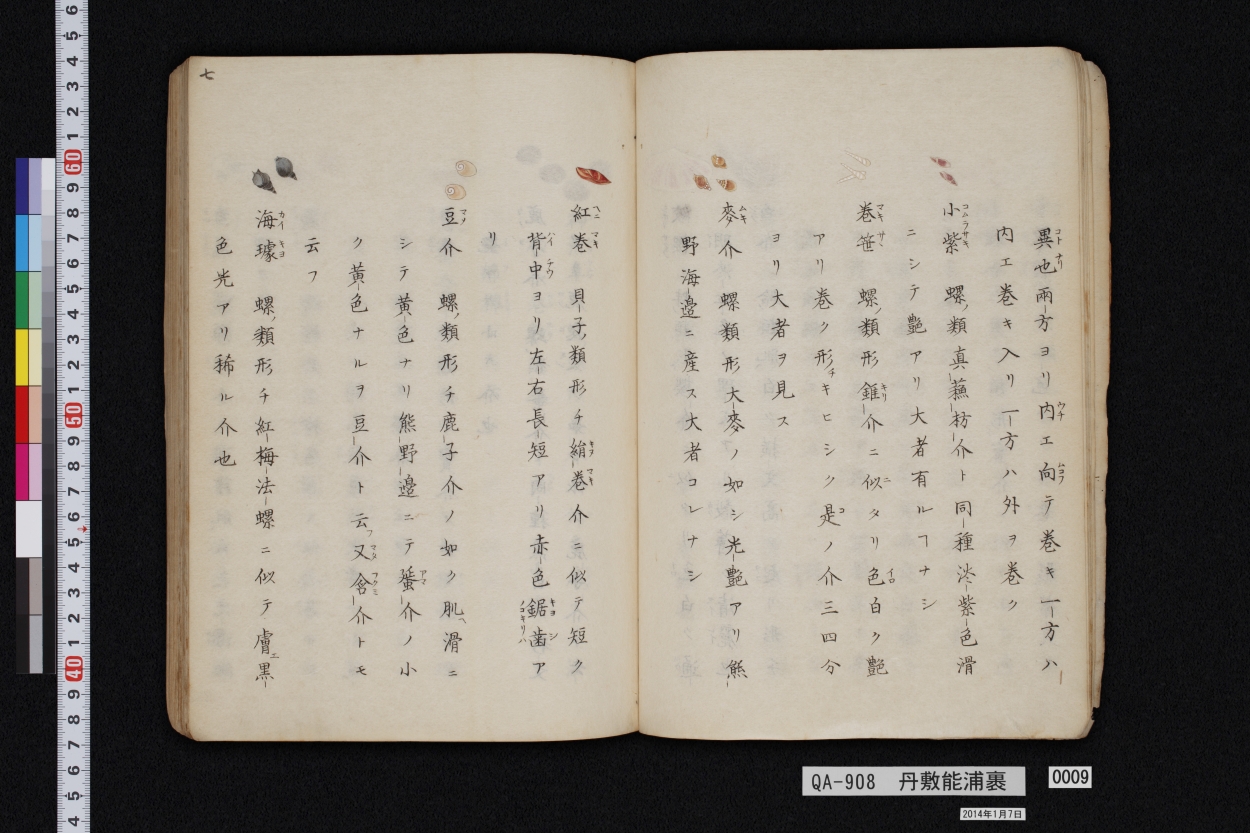 異也兩方ヨリ内エ向テ巻キ一方ハ
内エ巻キ入リ一方ハ外ヲ巻ク
小紫 螺ノ類真蘓枋介ト同種淡紫色滑
ニシテ艷アリ大者有ルヿナシ
巻笹 螺ノ類形錐介ニ似タリ色白ク艷
アリ巻ク形チキヒシク是ノ介三四分
ヨリ大者ヲ見ス
麥介 螺類形大麥ノ如シ光艷アリ熊
野海邉ニ産ス大者コレナシ
紅巻 貝子ノ類形チ絹巻介ニ似テ短ク
背中ヨリ左右長短アリ赤色鋸歯ア
リ
豆介 螺ノ類形チ鹿子介ノ如ク肌滑ニ
シテ黄色ナリ熊野邉ニテ蜑介ノ小
ク黄色ナルヲ豆介ト云フ又含介トモ
云フ
海璩 螺ノ類形チ紅梅法螺ニ似テ膚黒
色光アリ稀ル介也
七
QA-908 丹敷能浦裏
0009
2014年1月7日